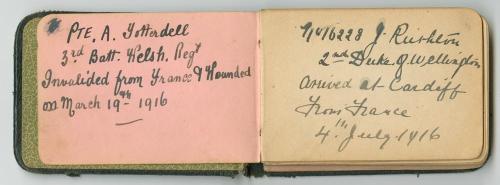 Pte. A. Totterdell
3rd Batt. Welsh. Regt
Invalided from France & Wounded
on March 19th 1916
J. Rushton
2nd Duke of Wellington
arrived at Cardiff
From France
4th July 1916